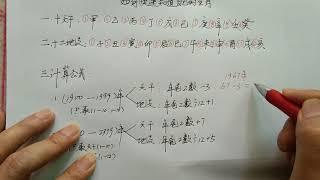 如何快速知道自己的生肖
一.十天干:①甲②乙③丙④丁⑤戊⑥己⑦庚⑧辛⑨壬⑩癸
二.十二地支:①子②丑③寅④卯⑤辰⑥巳⑦午⑧未⑨申⑩酉⑪戌⑫亥
三.计算公式
1967年
1.(1900—1999)年
天干 年尾2数-3
67-3=
地支 年尾2数÷12+1
2000—2099)年
天干 年尾2数+7
地支 年尾2数÷12+5